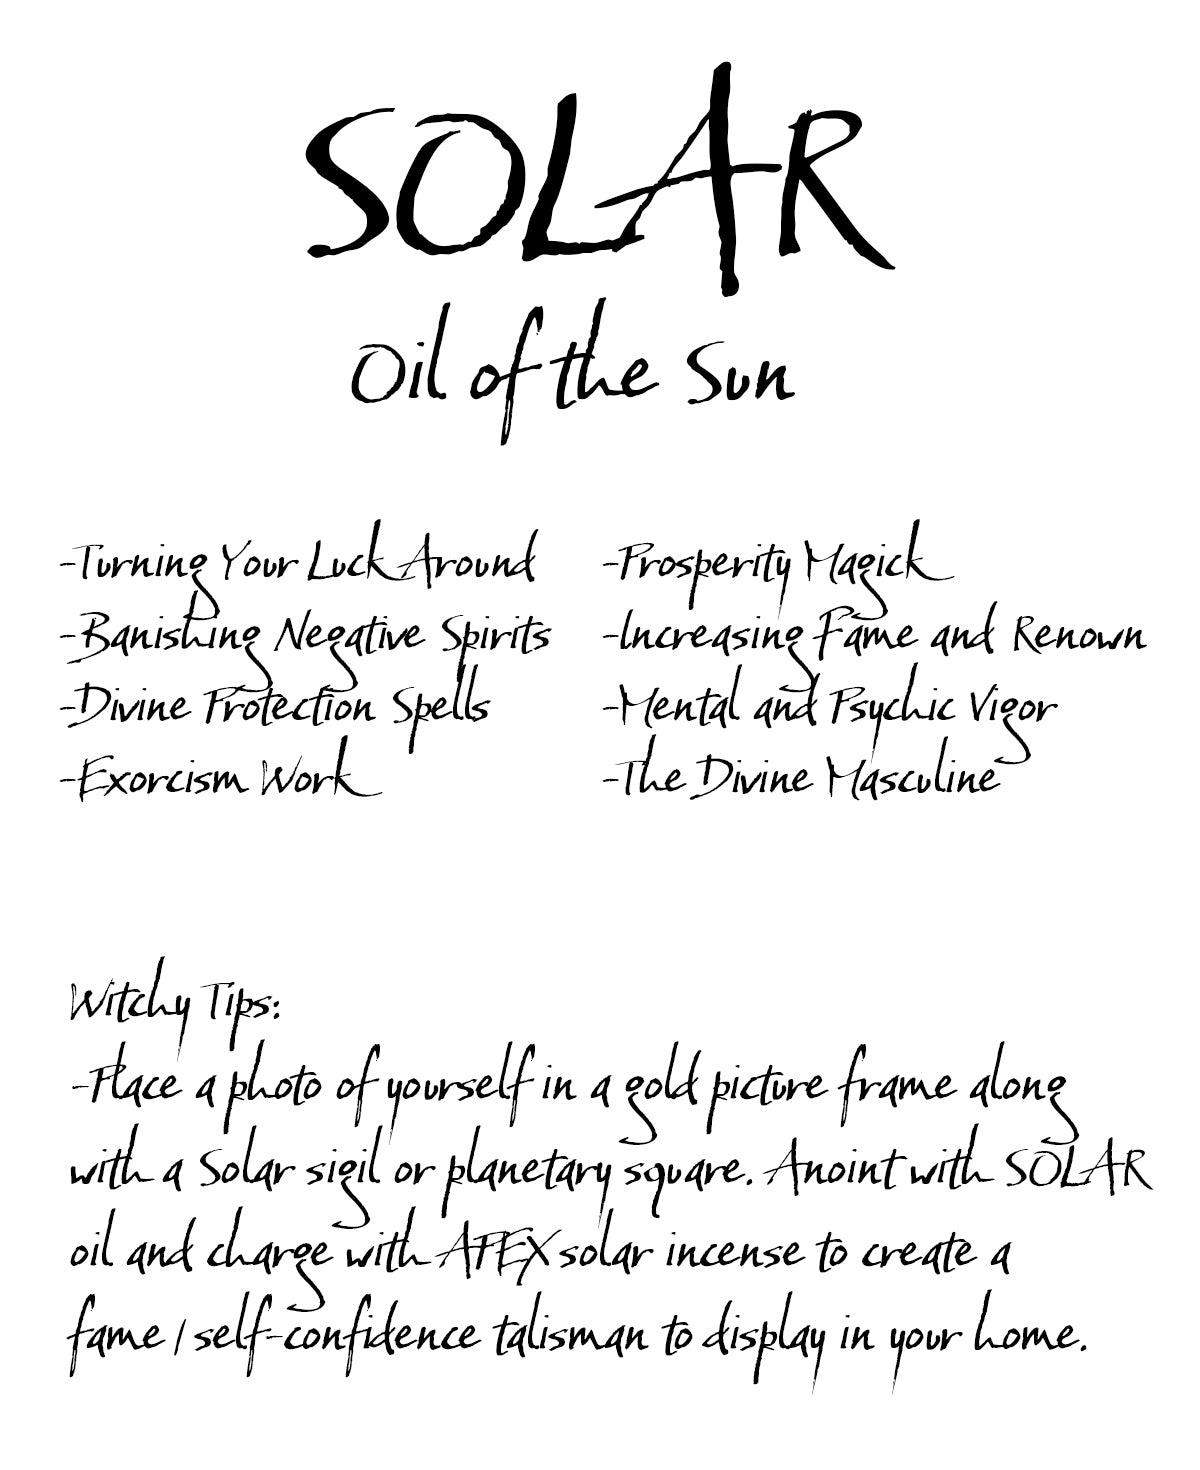 SOLAR
Oil of the Sun
-Turning Your Luck Around
-Banishing Negative Spirits
-Divine Protection Spells
-Exorcism Work
-Prosperity Magick
-Increasing Fame and Renown
-Mental and Psychic Vigor
-The Divine Masculine
Witchy Tips:
-Place a photo of yourself in a gold picture frame along
with a Solar sigil or planetary square. Anoint with SOLAR
oil and charge with APEX solar incense to create a
fame / self-confidence talisman to display in your home.